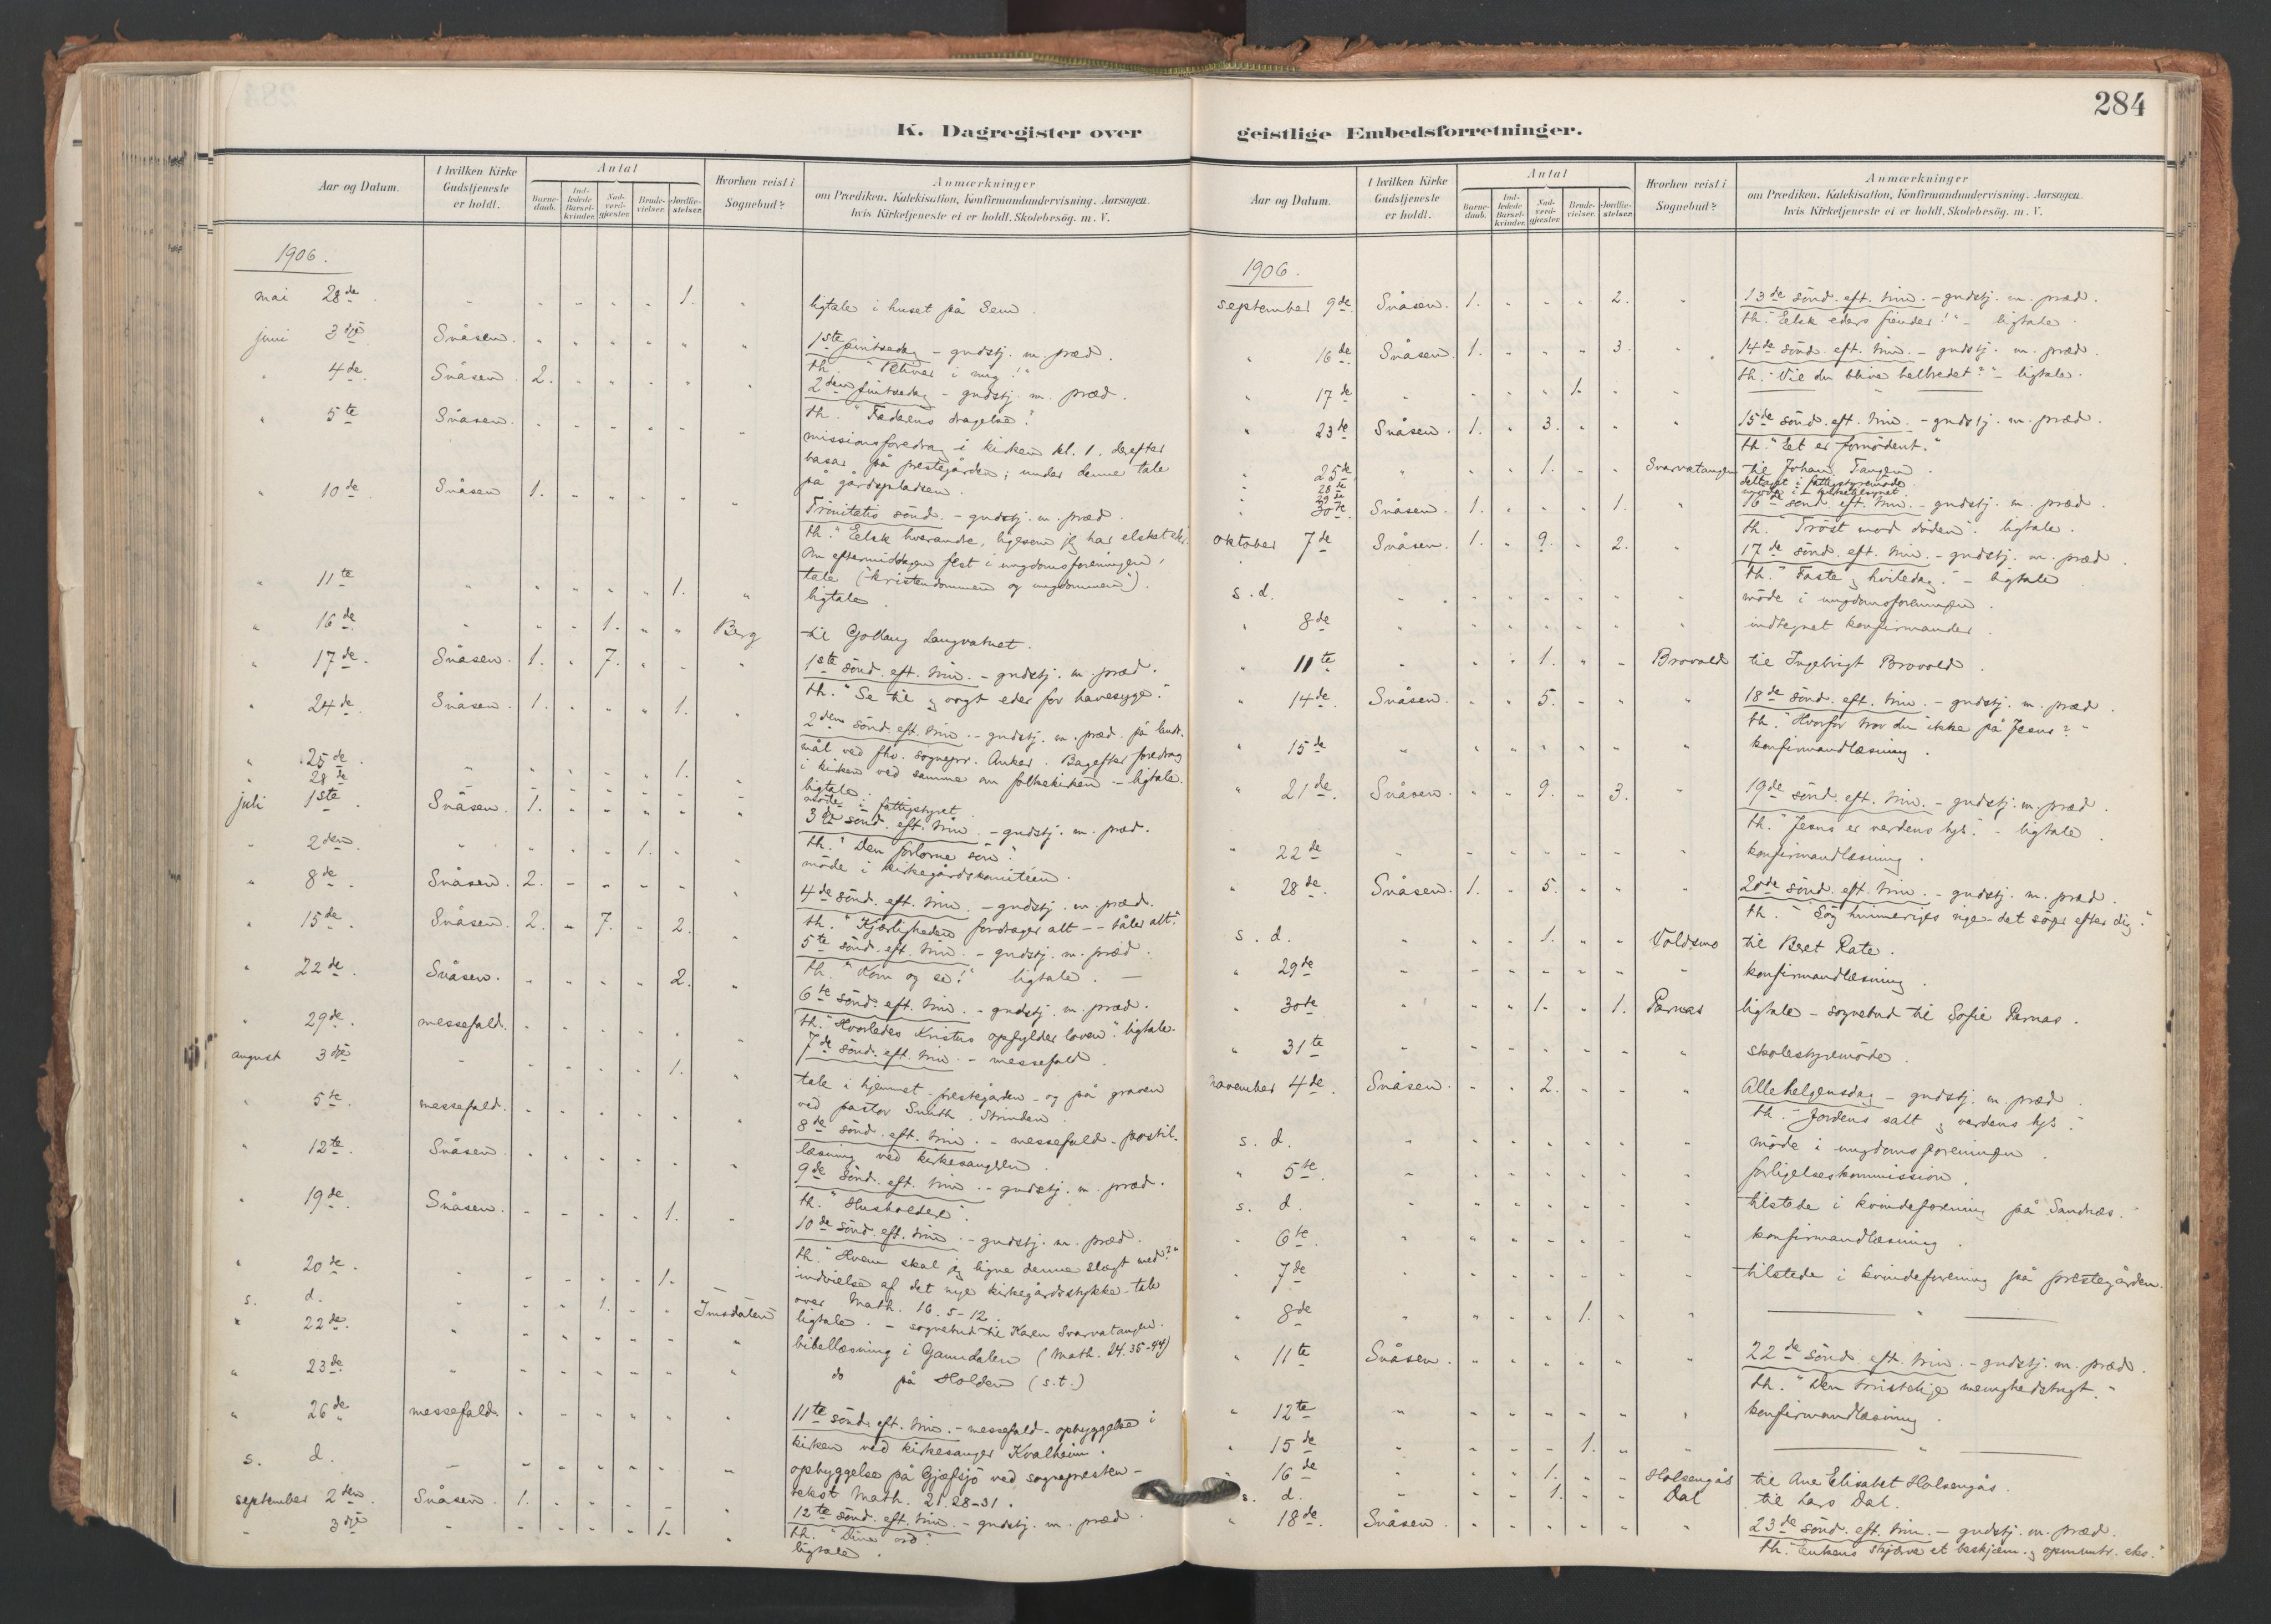 284
K. Dagregister over
geistlige Embedsforretninger.
Aar og Datum.
I hvilken Kirke Gudstjeneste er holdt.
Antal
Barnedaab.
Indledede Barselkvinder.
Nadverdgjæster.
Brudevielser.
Jordfæstelser.
Hvorhen reist i Sognebud?
Anmærkninger
om Prædiken, Katekisation, Konfirmandundervisning, Aarsagen,
hvis Kirketjeneste ei er holdt, Skolebesøg. m. V.
1906.
mai 28de. - - - - - - 1. " ligtale i huset på Sem.
juni 3die Snåsen. " " " " " " 1ste pintsedag - gudstj. m. præd.
th. "Bliver i mig!"
" 4de. Snåsen. 2. " " " " " 2den pintsedag - gudstj. m. præd.
th. "Faderens dragelse."
" 5te Snåsen. - - - - - " missionsforedrag i kirken kl. 1. derefter
basar på prestegården; under denne tale
på gårdspladsen.
" 10de. Snåsen 1. - - - - " Trinitatis sønd. - gudstj. m. præd.
th. "Elsk hverandre, ligesom jeg har elsket eder."
Om eftermiddagen fest i ungdomsforeningen,
tale ("kristendommen og ungdommen").
" 11te " " " " " 1. " ligtale.
" 16de. " " " 1. " " Berg til Gollaug Langvatnet.
" 17de. Snåsen. 1. " 7. " " " 1ste sønd. eft. trin. - gudstj. m. præd.
th. "Se til og vogt eder for havesyge."
" 24de. Snåsen. 1. " " " 1. " 2den sønd. eft. trin. - gudstj. m. præd. på lands-
mål ved fhv. sognepr. Anker. Bagefter foredrag
i kirken ved samme om folkekirken - ligtale.
" 25de. - - - - - 1. - ligtale.
" 28de - - - - - - - møde i fattigstyret.
juli 1ste Snåsen. 1. - - - - " 3die sønd. eft. trin. - gudstj. m. præd.
th. "Den fortorne søn."
" 2den. " " " " 1. " " møde i kirkegårdskomiteen.
" 8de. Snåsen. 2. - - - - " 4de sønd. eft. trin. - gudstj. m. præd.
th. "Kjærligheden fordrager alt -- tåler alt."
" 15de. Snåsen. 2. - 7. - 2. " 5te sønd. eft. trin. - gudstj. m. præd.
th. "Kom og se!" ligtale. -
" 22de Snåsen. - - - - 2. " 6te sønd. eft. trin. - gudstj. m. præd.
th. "Hvorledes Kristus opfylder loven". ligtale.
" 29de. messefald. - - - - - - 7de sønd. eft. trin. - messefald.
august 3die - - - - - 1. " tale i hjemmet - prestegården - og på graven
ved pastor Smith. Strinden.
" 5te. messefald. - - - - - " 8de sønd. eft. trin. - messefald - postil-
læsning ved kirkesangeren.
" 12te. Snåsen. - - - - - " 9de sønd. eft. trin. - gudstj. m. præd.
th. "Husholdere".
" 19de. Snåsen. - - - - 1. " 10de sønd. eft. trin. - gudstj. m. præd.
th. "Hvem skal jeg ligne denne slægt med?"
" 20de. " - - - - 1. indvielse af det nye kirkegårdsstykke - tale
over Math. 16. 5-12.
s. d. " - - 1. - - Imsdalen ligtale. - sognebud til Karen Svarvatangen.
" 22de. " " " " " " " bibellæsning i Gamdalen (Math. 24. 35-44)
" 23de. " " " " " " " do på Holden (s.t.)
" 26de. messefald. - - " " " " 11te sønd. eft. trin. - messefald - opbyggelse i
kirken ved kirkesanger Kvalheim.
s. d. - - - - - - - opbyggelse på Gjæfsjø ved sognepresten -
tekst Math. 21. 28-31.
september 2den. Snåsen. 1. - - - - " 12te sønd. eft. trin. - gudstj. m. præd.
th. "Dine ord".
" 3die - - - - - 1. " ligtale.
Aar og Datum.
I hvilken Kirke Gudstjeneste er holdt.
Antal
Barnedaab.
Indledede Barselkvinder.
Nadverdgjæster.
Brudevielser.
Jordfæstelser.
Hvorhen reist i Sognebud?
Anmærkninger
om Prædiken, Katekisation, Konfirmandundervisning, Aarsagen,
hvis Kirketjeneste ei er holdt, Skolebesøg. m. V.
1906.
september 9de. Snåsen. 1. - - - 2. " 13de sønd. eft. trin. - gudstj. m. præd.
th. "Elsk eders fiender!" - ligtale.
" 16de Snåsen. 1. - - - 3. " 14de sønd. eft. trin. - gudstj. m. præd.
th. "Vil du blive helbredet?" - ligtale.
" 17de " " " " 1. " " — " —
" 23de Snåsen. 1. " 3. " " " 15de sønd. eft. trin. - gudstj. m. præd.
th. "Et er fornødent."
" 25de " " " 1. - - Svarvatangen til Johan Tangen.
" 28de deltaget i fattigstyremøde
" 29de
" 30te. Snåsen. 1. - - - 1. " 16de sønd. eft. trin. - gudstj. m. præd.
th. "Trøst mod døden". ligtale.
oktober 7de Snåsen. 1. " 9. - 2. " 17de sønd. eft. trin. - gudstj. m. præd.
th. "Faste og hviledag." - ligtale
s. d. - - - - - - - møde i ungdomsforeningen.
" 8de " " " " " " " indtegnet konfirmander.
" 11te - - - 1. " - Brovold til Ingebrigt Brovold.
" 14de. Snåsen. - - 5. - - " 18de sønd. eft. trin. - gudstj. m. præd.
th. "Hvorfor tror du ikke på Jesus?" -
" 15de " " " " " " " konfirmandlæsning.
" 21de. Snåsen. " " 9. " 3. " 19de sønd. eft. trin. - gudstj. m. præd.
th. "Jesus er verdens lys". - ligtale.
" 22de - - - - - - - konfirmandlæsning.
" 28de. Snåsen. 1. " 5. " " " 20de sønd. eft. trin. - gudstj. m. præd.
th. - "Søg himmeriges rige - det søger efter dig."
s. d. " " " 1. " " Voldsmo til Beret Rate.
" 29de - - - - - - - konfirmandlæsning.
" 30te " " " 1. - 1. Parnas ligtale - sognebud til Sofie Parnas.
" 31te - - - - - - " skolestyremøde.
november 4de. Snåsen. - - 2. - - " Allehelgensdag - gudstj. m. præd.
th. "Jordens salt og verdens lys."
s. d. " " " " " " " møde i ungdomsforeningen.
" 5te. - - - - - - - forligelseskommission.
s. d. " " " " " " " tilstede i kvindeforening på Sandnes.
" 6te. " " " " " " " konfirmandlæsning.
" 7de " " " " " " " tilstede i kvindeforening på prestegården.
" 8de " " " " 1. " " — " —
" 11te Snåsen. " " " " " " 22de sønd. eft. trin. - gudstj. m. præd.
th. "Den kristelige menighedstugt."
" 12te " " " " " " " konfirmandlæsning.
" 15de " " " - 1. " " — " —
" 16de " " " 1. " " Holsengås til Ane Elisabet Holsengås.
s. d. - - - 1. - - Dal til Lars Dal.
" 18de. Snåsen. " " " " " " 23de sønd. eft. trin. - gudstj. m. præd.
th. "Enkens skjærv et beskjæm. og opmuntr. eks."